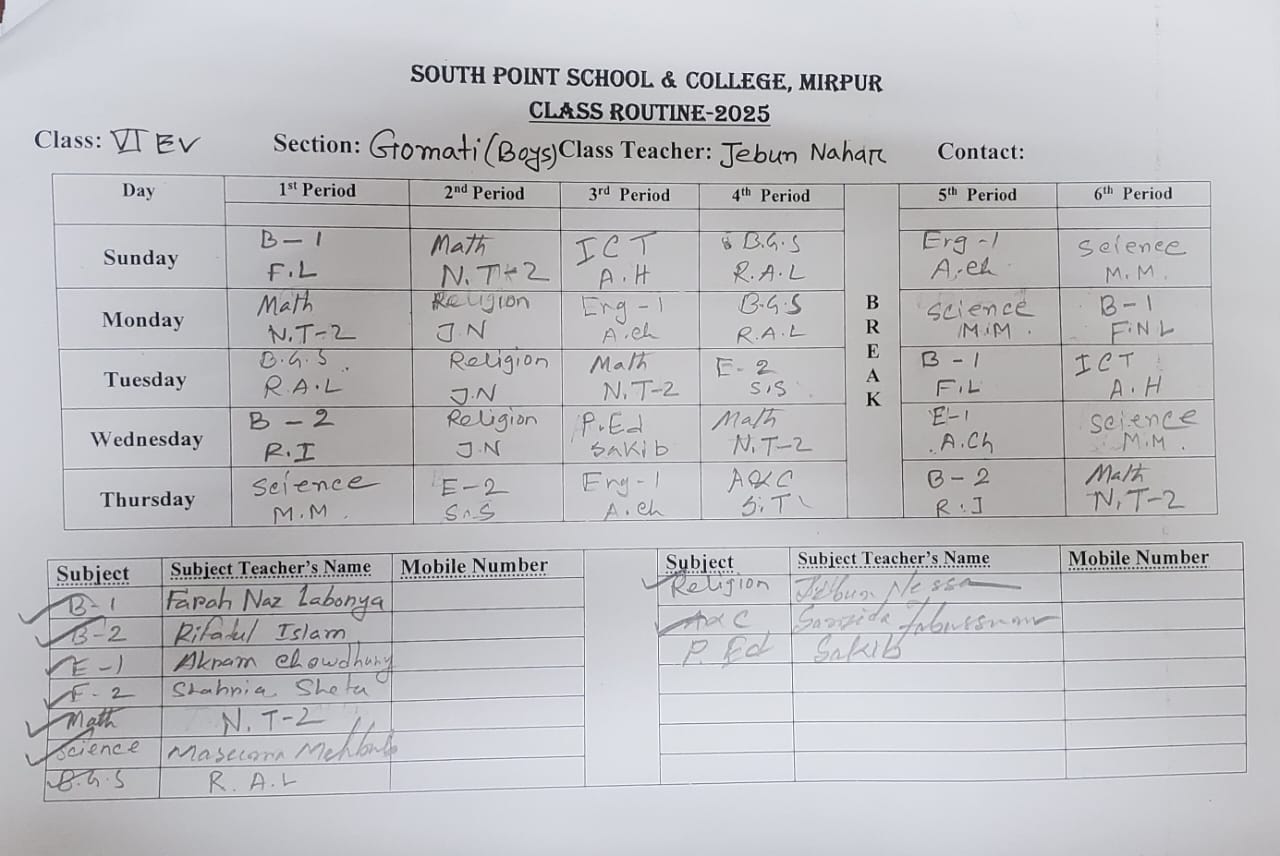 SOUTH POINT SCHOOL & COLLEGE, MIRPUR
CLASS ROUTINE-2025
Class: VI EV Section: Gomati (Boys) Class Teacher: Jebun Nahar Contact:
Day 1st Period 2nd Period 3rd Period 4th Period BREAK 5th Period 6th Period
Sunday B-1 Math ICT B.G.S Eng-1 Science
F.L N.T-2 A.H R.A.L A.ch M.M.
Monday Math Religion Eng-1 B.G.S Science B-1
N.T-2 J.N A.ch R.A.L M.M. F.N L
Tuesday B.G.S Religion Math E-2 B-1 ICT
R.A.L J.N N.T-2 S.S F.L A.H
Wednesday B-2 Religion P.Ed Math E-1 Science
R.I J.N Sakib N.T-2 A.Ch M.M.
Thursday Science E-2 Eng-1 A&C B-2 Math
M.M. S.S A.ch S.T R.I N.T-2
Subject Subject Teacher's Name Mobile Number Subject Subject Teacher's Name Mobile Number
B-1 Farah Naz Labonya Religion Jebun Nessa
B-2 Rifatul Islam A&C Sanzida Tabussum
E-1 Akram Chowdhury P. Ed Sakib
E-2 Shahria Sheta
Math N.T-2
Science Maseuma
B.G.S R.A.L